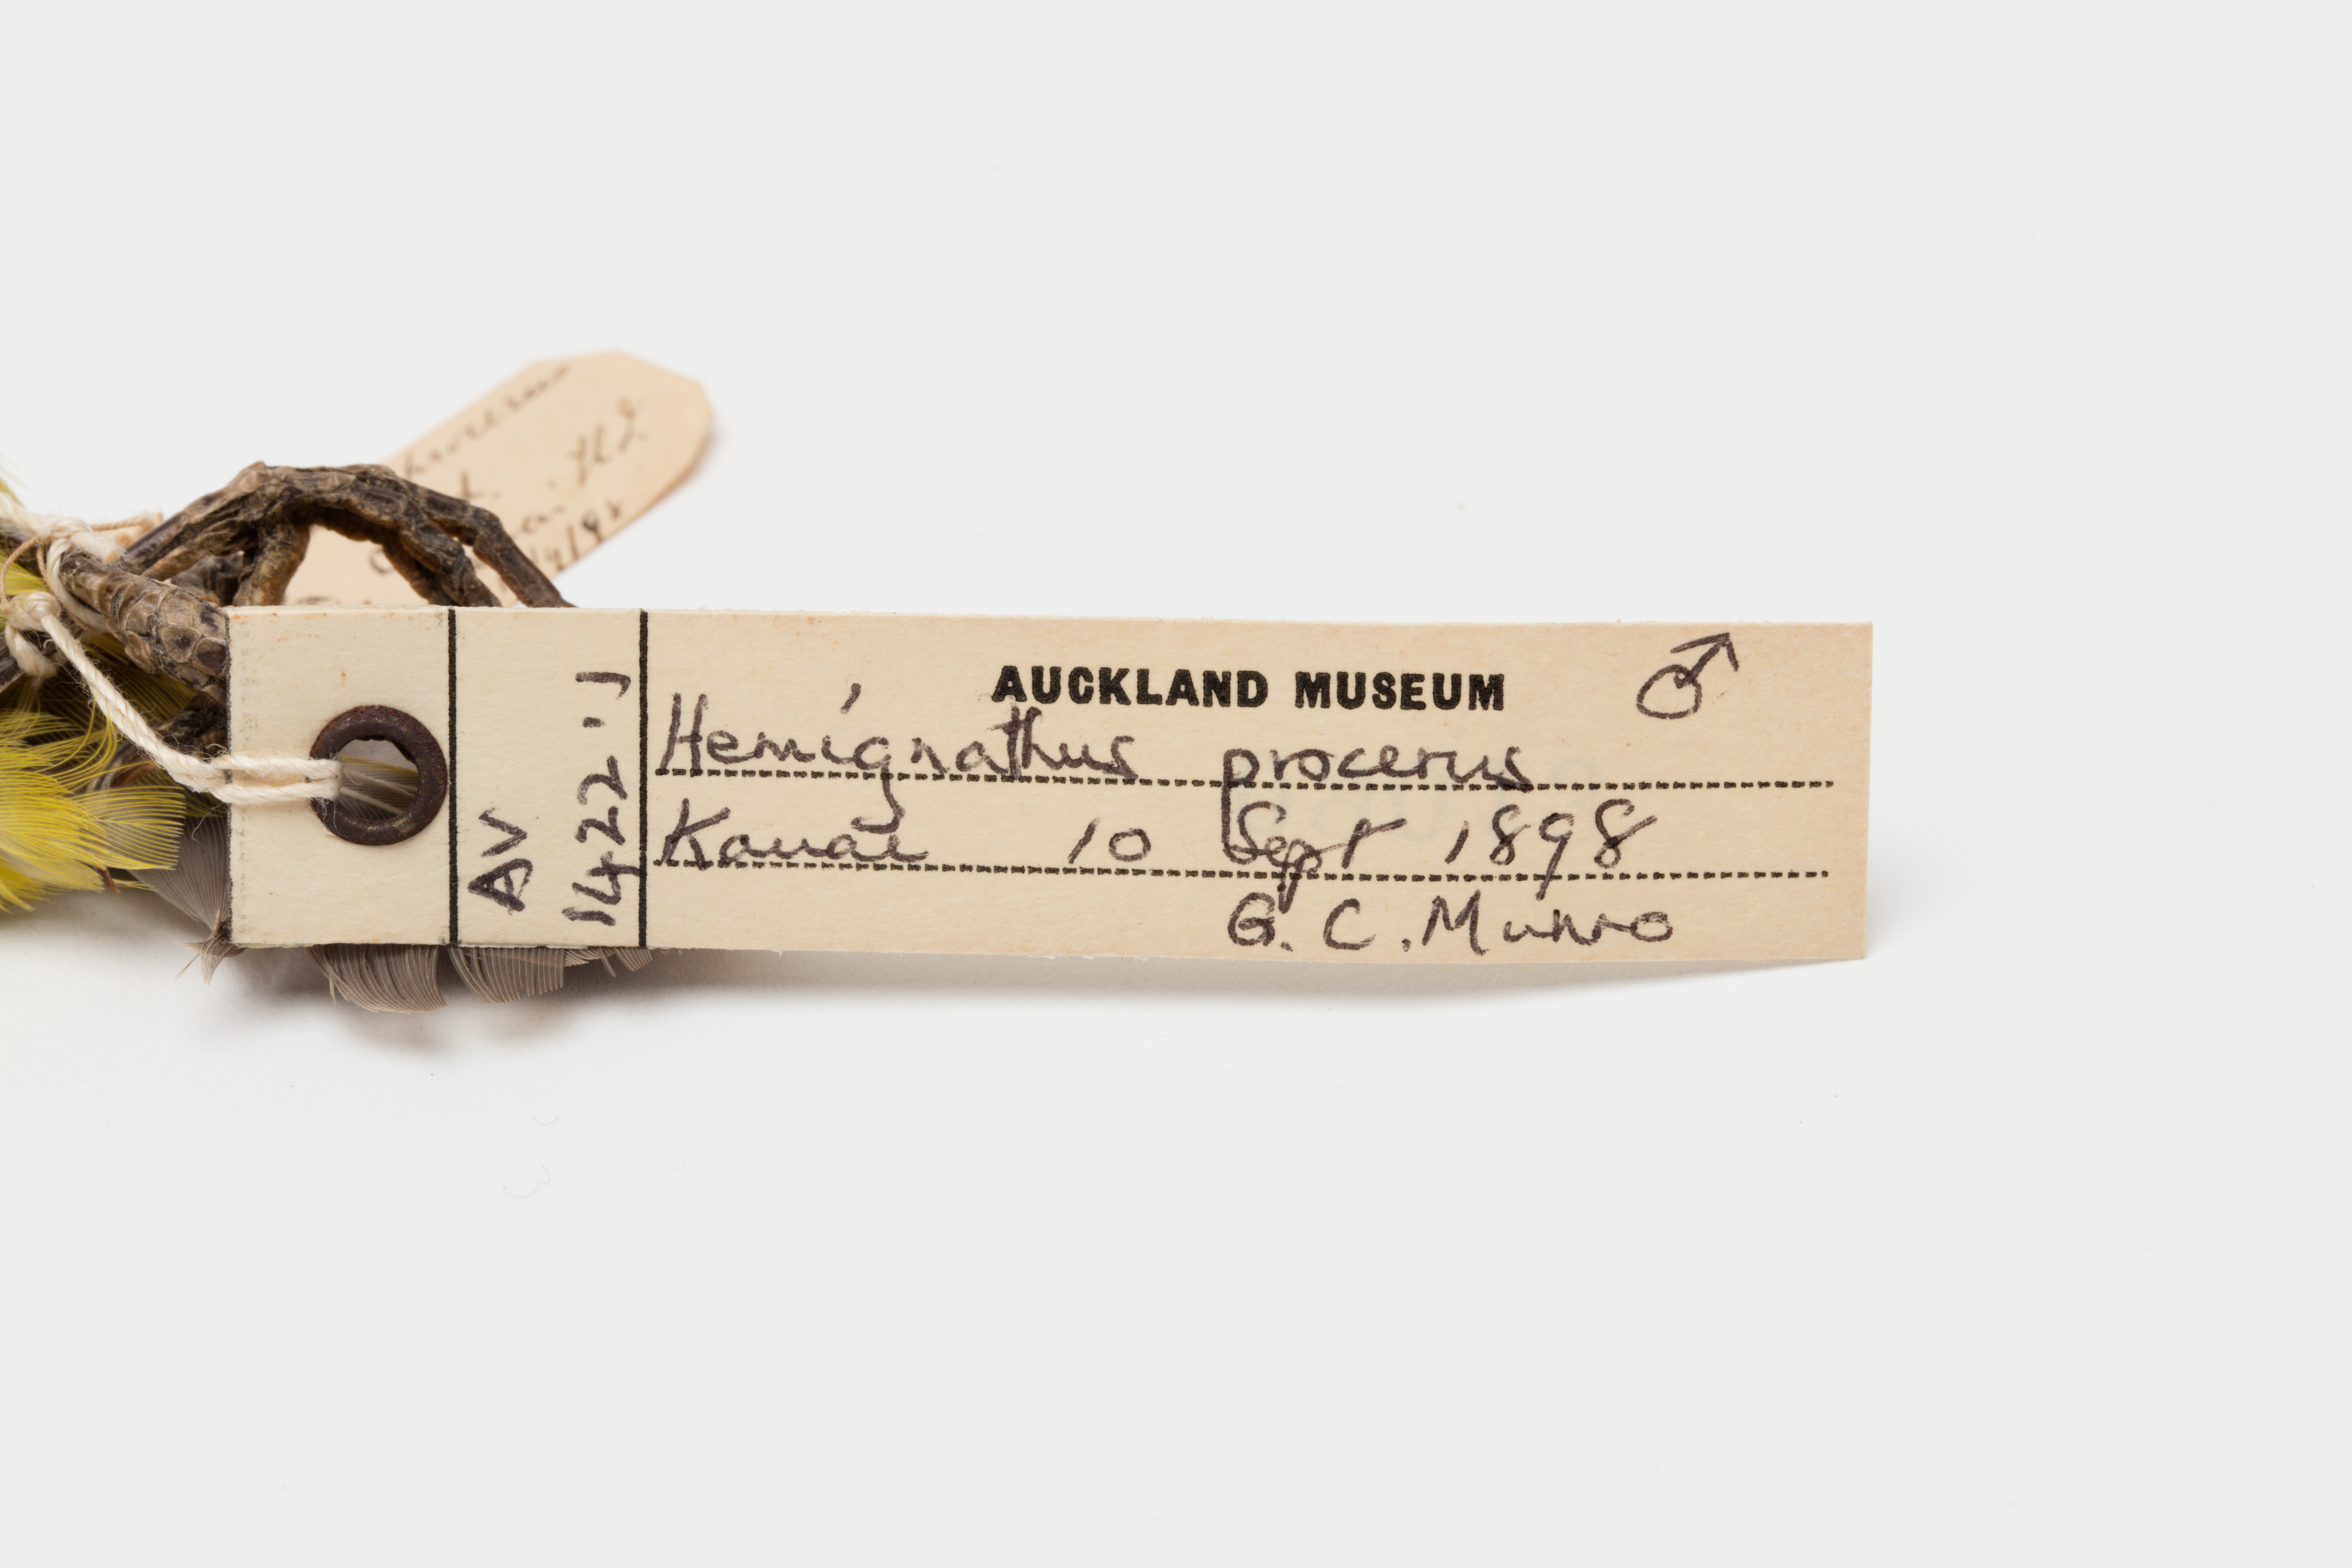 AUCKLAND MUSEUM ♂
Hemignathus procerus
Kauai 10 Sept 1898
G. C. Munro
AV
1422.1